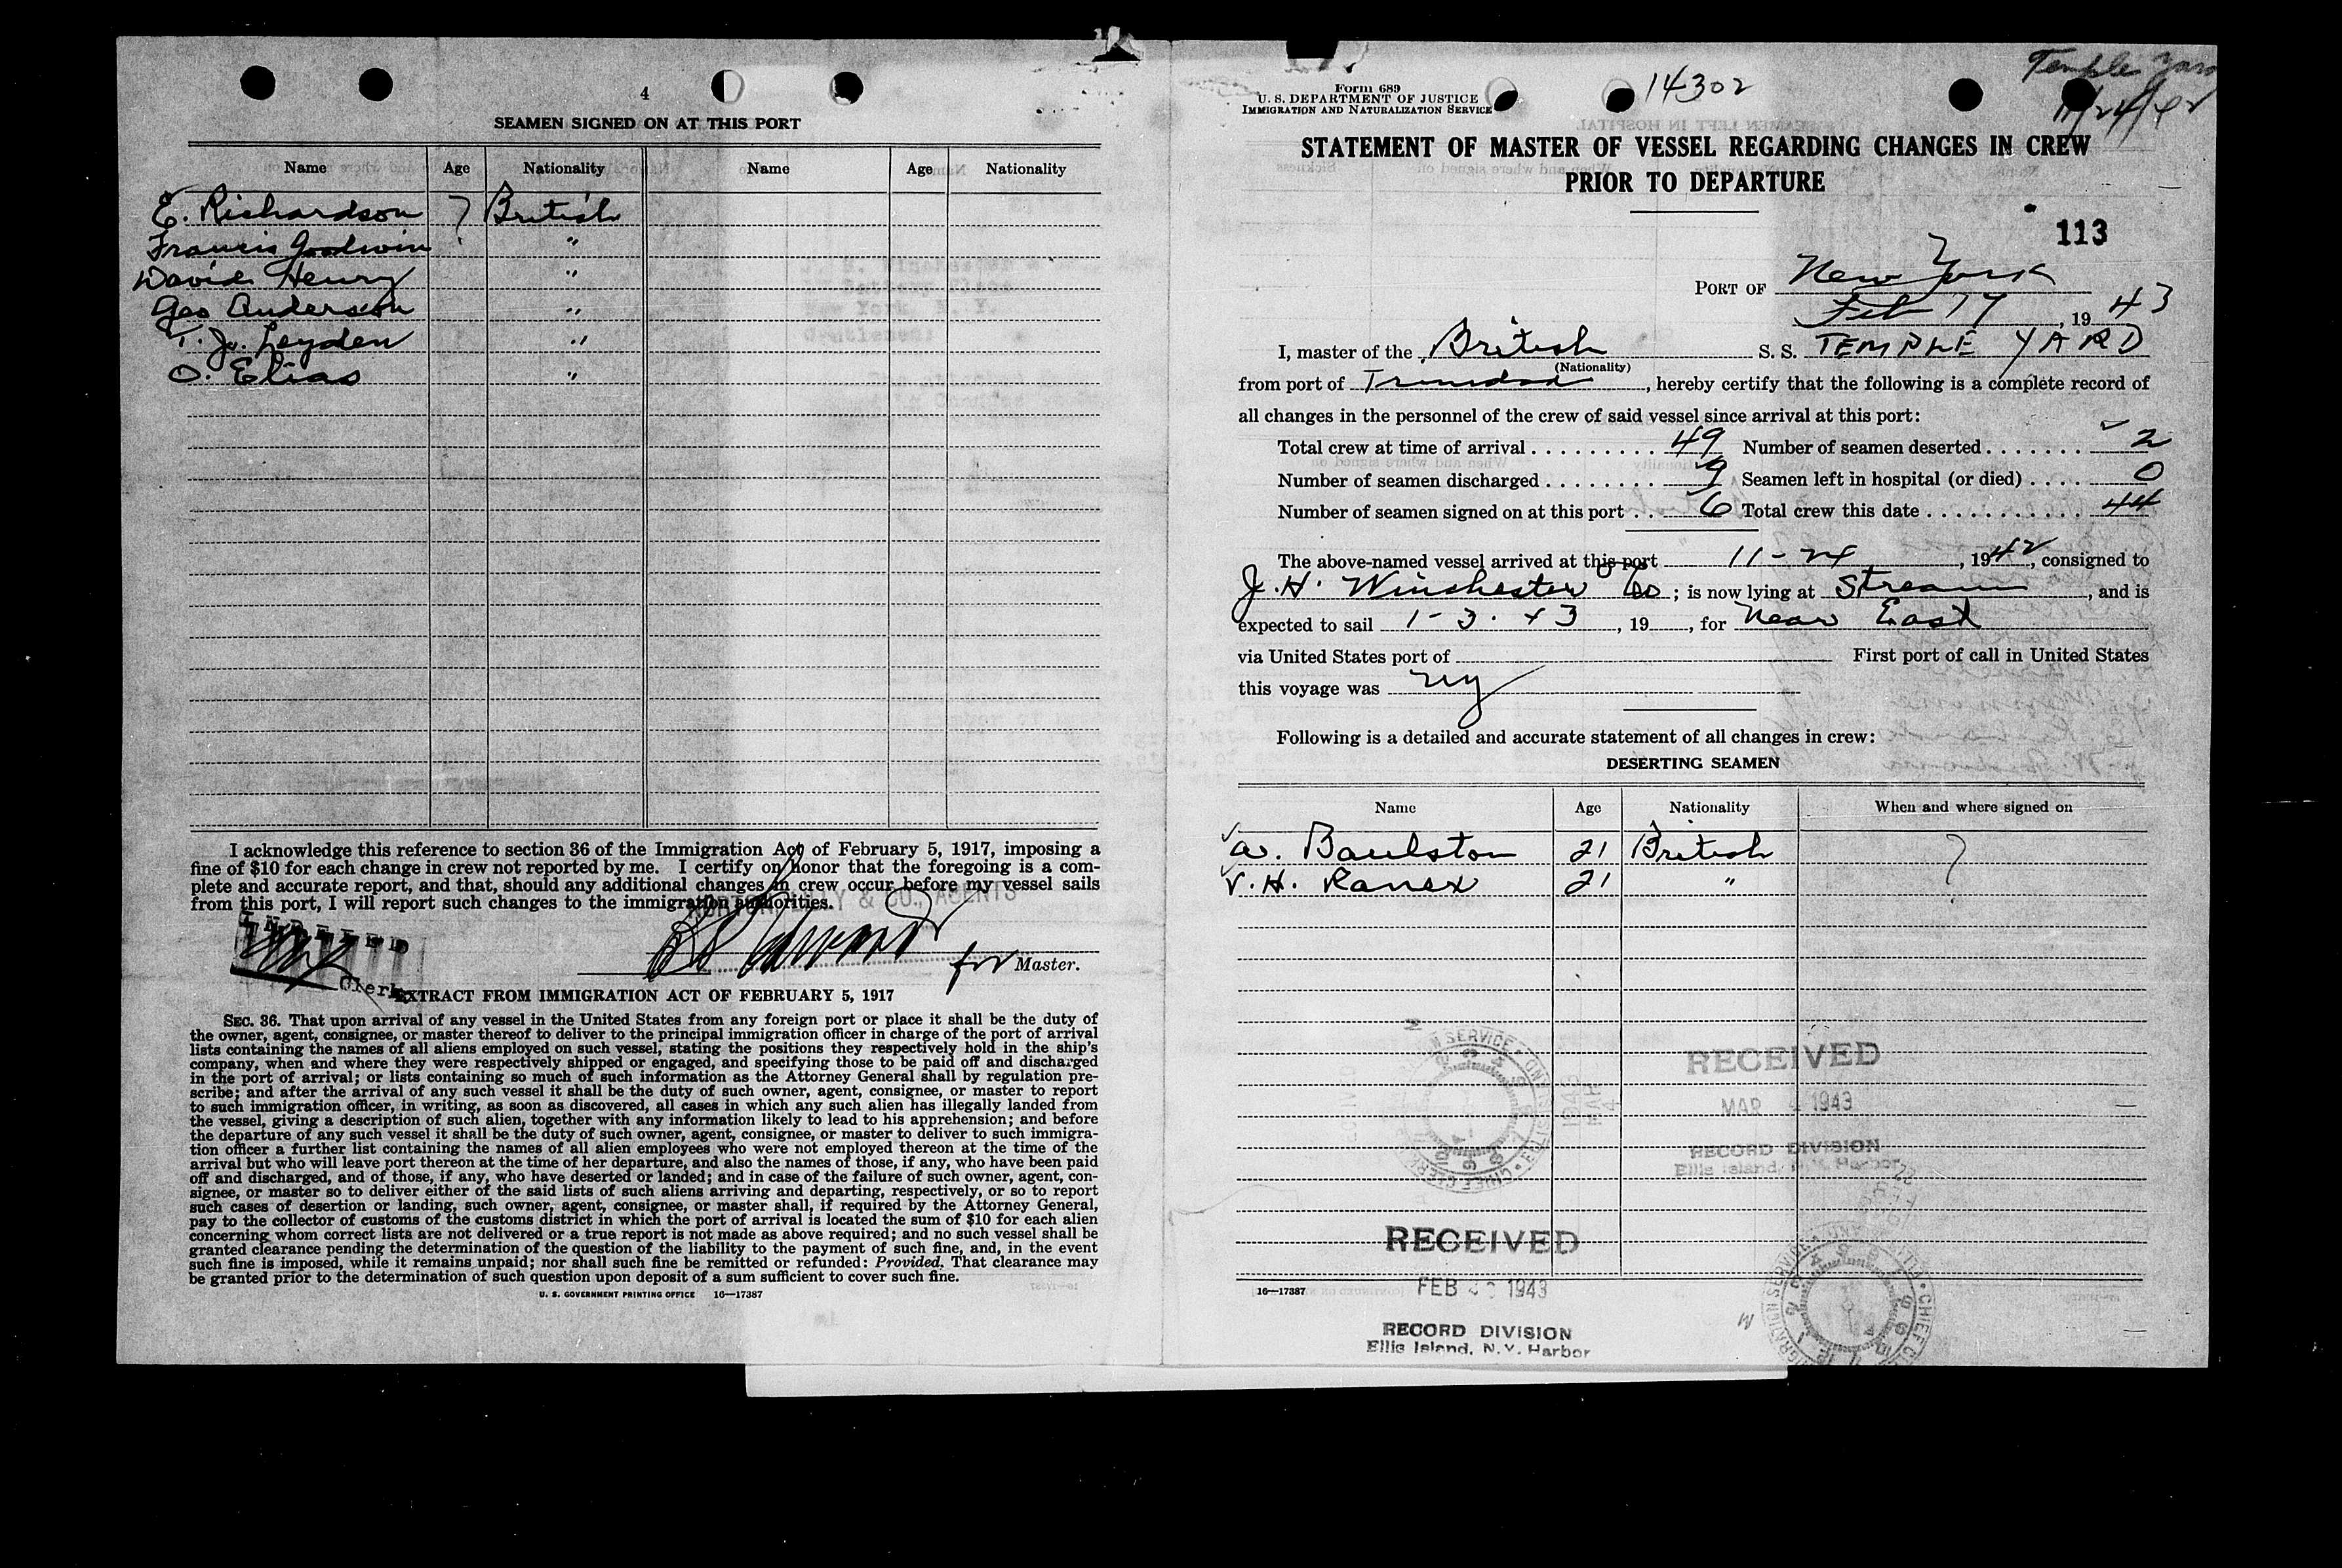 4
SEAMEN SIGNED ON AT THIS PORT
Name Age Nationality Name Age Nationality
E. Richardson ? British
Francis Goodwin "
David Henry "
Geo Anderson "
T. Jo. Leyden "
O. Elias "
I acknowledge this reference to section 36 of the Immigration Act of February 5, 1917, imposing a
fine of $10 for each change in crew not reported by me. I certify on honor that the foregoing is a com-
plete and accurate report, and that, should any additional changes in crew occur before my vessel sails
from this port, I will report such changes to the immigration authorities.
NORTON, LILLY & CO., AGENTS
INDEXED
for Master.
Clerk
EXTRACT FROM IMMIGRATION ACT OF FEBRUARY 5, 1917
SEC. 36. That upon arrival of any vessel in the United States from any foreign port or place it shall be the duty of
the owner, agent, consignee, or master thereof to deliver to the principal immigration officer in charge of the port of arrival
lists containing the names of all aliens employed on such vessel, stating the positions they respectively hold in the ship's
company, when and where they were respectively shipped or engaged, and specifying those to be paid off and discharged
in the port of arrival; or lists containing so much of such information as the Attorney General shall by regulation pre-
scribe; and after the arrival of any such vessel it shall be the duty of such owner, agent, consignee, or master to report
to such immigration officer, in writing, as soon as discovered, all cases in which any such alien has illegally landed from
the vessel, giving a description of such alien, together with any information likely to lead to his apprehension; and before
the departure of any such vessel it shall be the duty of such owner, agent, consignee, or master to deliver to such immigra-
tion officer a further list containing the names of all alien employees who were not employed thereon at the time of the
arrival but who will leave port thereon at the time of her departure, and also the names of those, if any, who have been paid
off and discharged, and of those, if any, who have deserted or landed; and in case of the failure of such owner, agent, con-
signee, or master so to deliver either of the said lists of such aliens arriving and departing, respectively, or so to report
such cases of desertion or landing, such owner, agent, consignee, or master shall, if required by the Attorney General,
pay to the collector of customs of the customs district in which the port of arrival is located the sum of $10 for each alien
concerning whom correct lists are not delivered or a true report is not made as above required; and no such vessel shall be
granted clearance pending the determination of the question of the liability to the payment of such fine, and, in the event
such fine is imposed, while it remains unpaid; nor shall such fine be remitted or refunded: Provided, That clearance may
be granted prior to the determination of such question upon deposit of a sum sufficient to cover such fine.
U. S. GOVERNMENT PRINTING OFFICE 16—17387
Form 689
U. S. DEPARTMENT OF JUSTICE
IMMIGRATION AND NATURALIZATION SERVICE
14302
Temple Yard
11/24/42
STATEMENT OF MASTER OF VESSEL REGARDING CHANGES IN CREW
PRIOR TO DEPARTURE
113
PORT OF New York
Feb 17, 1943
I, master of the British S. S. TEMPLE YARD
(Nationality)
from port of Trinidad, hereby certify that the following is a complete record of
all changes in the personnel of the crew of said vessel since arrival at this port:
Total crew at time of arrival 49 Number of seamen deserted 2
Number of seamen discharged 9 Seamen left in hospital (or died) 0
Number of seamen signed on at this port 6 Total crew this date 44
The above-named vessel arrived at this port 11-24, 1942, consigned to
J. H. Winchester Co; is now lying at Stream, and is
expected to sail 1-3.43, 19, for Near East
via United States port of First port of call in United States
this voyage was NY
Following is a detailed and accurate statement of all changes in crew:
DESERTING SEAMEN
Name Age Nationality When and where signed on
A. Baulston 21 British ?
V. H. Ranex 21 "
RECEIVED
MAR 4 1943
RECORD DIVISION
Ellis Island, N.Y. Harbor
RECEIVED
FEB 1943
16—17387
RECORD DIVISION
Ellis Island, N.Y. Harbor